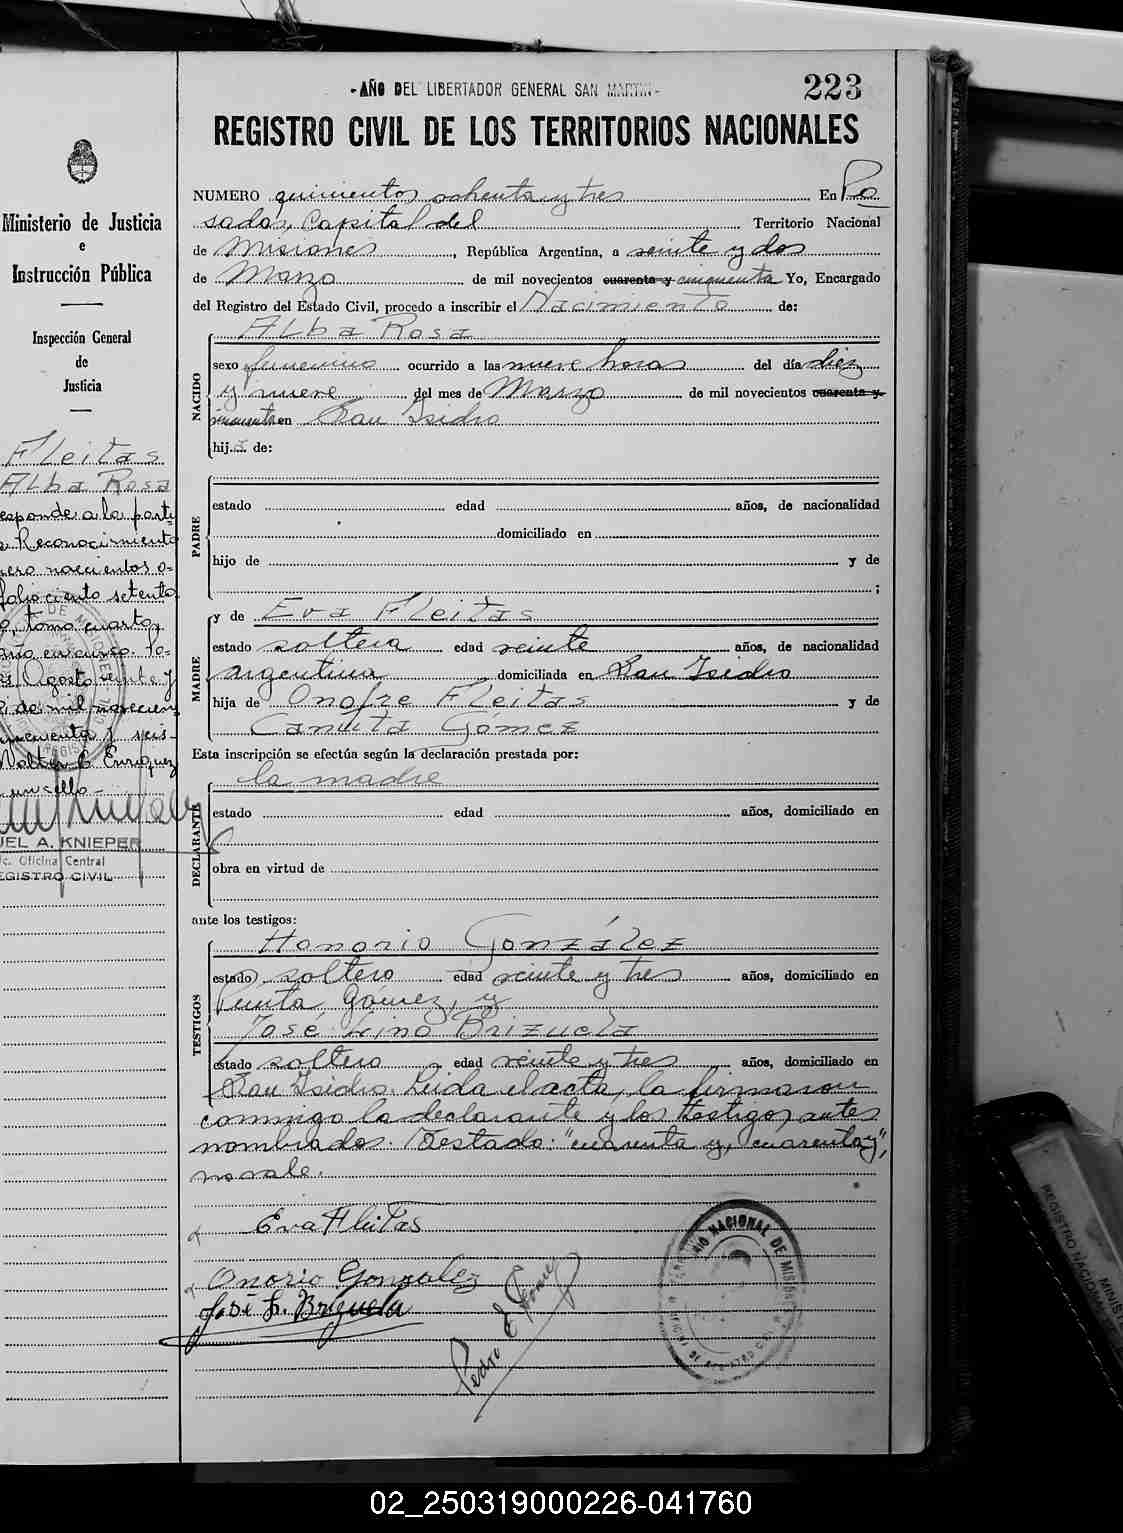 Ministerio de Justicia
e
Instrucción Pública
Inspección General
de
Justicia
Fleitas
Alba Rosa
esponde a la parti-
Reconocimiento
mero novecientos o-
folio ciento setenta
o, tomo cuarto,
año en curso. Po-
Agosto veinte y
de mil novecien
cincuenta y seis-
Walter C. Enriquez
un sello-
UEL A. KNIEPER
Oficina Central
EGISTRO CIVIL
- AÑO DEL LIBERTADOR GENERAL SAN MARTIN -
223
REGISTRO CIVIL DE LOS TERRITORIOS NACIONALES
NUMERO quinientos ochenta y tres En Po
sadas, Capital del Territorio Nacional
de Misiones, República Argentina, a veinte y dos
de Marzo de mil novecientos cuarenta y cincuenta Yo, Encargado
del Registro del Estado Civil, procedo a inscribir el Nacimiento de:
NACIDO
Alba Rosa
sexo femenino ocurrido a las nueve horas del día diez
y nueve del mes de Marzo de mil novecientos cuarenta y
cincuenta en San Isidro
hija de:
PADRE
estado edad años, de nacionalidad
domiciliado en
hijo de y de
;
MADRE
y de Eva Fleitas
estado soltera edad veinte años, de nacionalidad
argentina domiciliada en San Isidro
hija de Onofre Fleitas y de
Candita Gómez
Esta inscripción se efectúa según la declaración prestada por:
DECLARANTE
la madre
estado edad años, domiciliado en
obra en virtud de
ante los testigos:
TESTIGOS
Honorio González
estado soltero edad veinte y tres años, domiciliado en
Punta Gómez, y
José Lino Brizuela
estado soltero edad veinte y tres años, domiciliado en
San Isidro. Leida el acta, la firmaron
conmigo la declarante y los testigos antes
nombrados. Testado: "cuarenta y, cuarenta y",
no vale.
Eva Fleitas
Onorio Gonzalez
José L. Brizuela
Pedro E.
NACIONAL DE MISIONES
REGISTRO NACIONAL
MINISTE
02_250319000226-041760